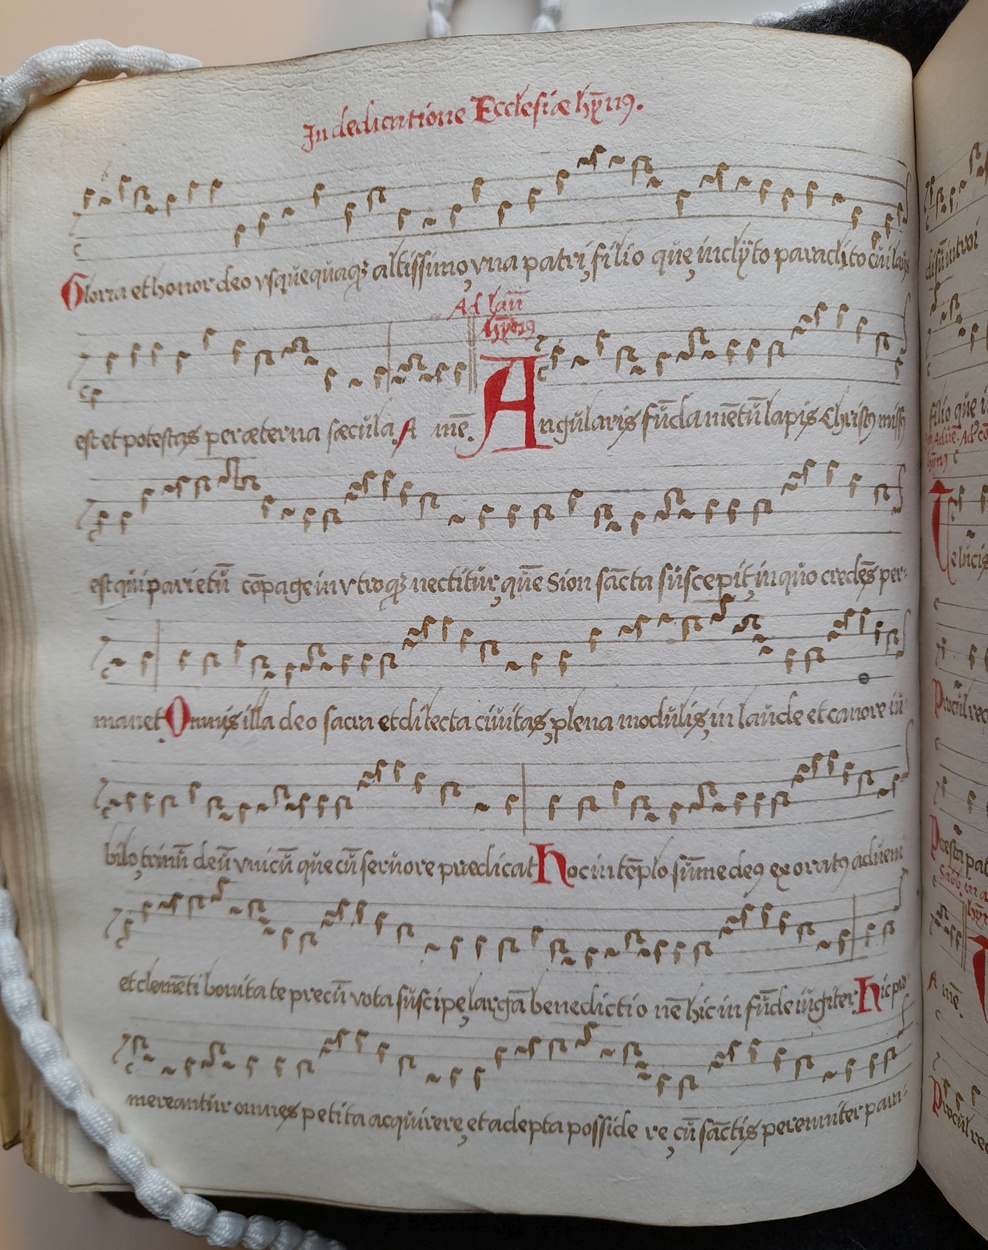 In dedicatione Ecclesiæ hȳnꝰ.
Gloria et honor deo vsquequaqꝫ altissimo vna patri, filio que, inclÿto paraclito cui laus
Ad lau
hȳnꝰ
est et potestas per æterna sæcula A mē. Angularis fūdamētū lapis Christꝰ miss
est qui parietū cōpage in vtroqꝫ nectitur, quē Sion sācta suscepit, in quo credēs per-
manet Omnis illa deo sacra et dilecta ciuitas, plena modulis, in laude et canore iu
bilo, trinū deū vnicū que cū feruore prædicat Hoc in tēplo sūme deꝰ exoratꝰ adueni
et clemēti bonitate precū vota suscipe, largā benedictio nē hic in fūde iugiter. Hic pro
mereantur omnes petita acquirere, et adepta posside re, cū sāctis perenniter para-